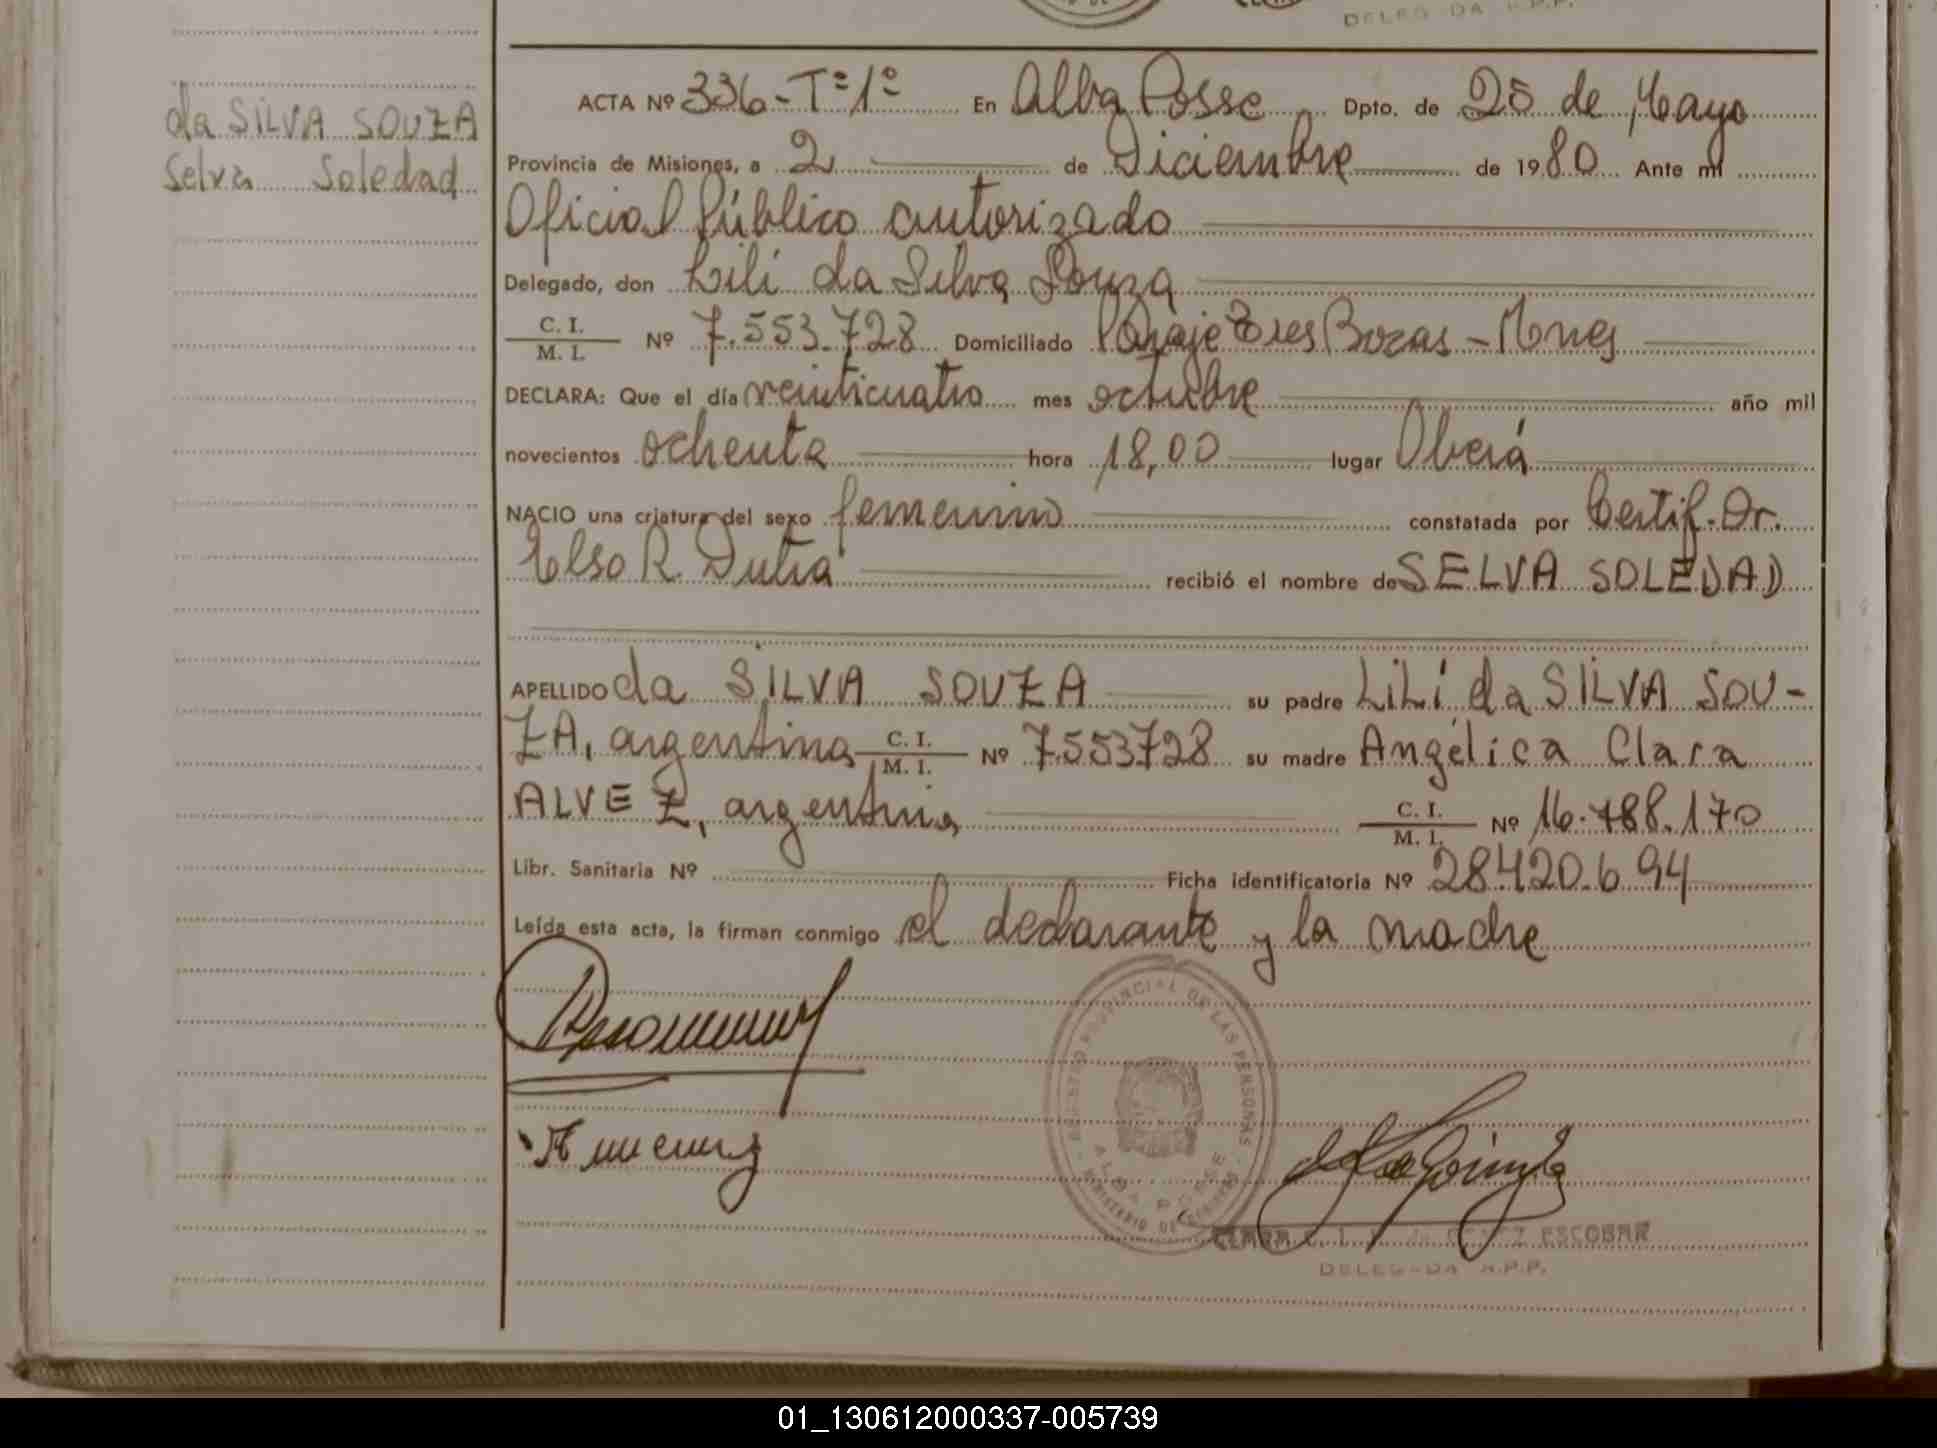 DELEG DA R.P.P.
da SILVA SOUZA
Selva Soledad
ACTA Nº 336-Tº1º En Alba Posse Dpto. de 25 de Mayo
Provincia de Misiones, a 2 de Diciembre de 1980 Ante mí
Oficial Público autorizado
Delegado, don Lili da Silva Souza
C. I.
M. I. Nº 7.553.728 Domiciliado Paraje Tres Bocas - Mnes
DECLARA: Que el día veinticuatro mes octubre año mil
novecientos ochenta hora 18,00 lugar Oberá
NACIO una criatura del sexo femenino constatada por Certif. Dr.
Elso R. Dutra recibió el nombre de SELVA SOLEDAD
APELLIDO da SILVA SOUZA su padre LiLí da SILVA SOU-
ZA, argentina C. I. M. I. Nº 7.553728 su madre Angélica Clara
ALVEZ, argentina C. I. M. I. Nº 16.788.170
Libr. Sanitaria Nº Ficha identificatoria Nº 28.420.694
Leída esta acta, la firman conmigo el declarante y la madre
REGISTRO PROVINCIAL DE LAS PERSONAS
ALBA POSSE
MINISTERIO DE GOBIERNO
CLARA ESCOBAR
DELEGADA R.P.P.
01_130612000337-005739